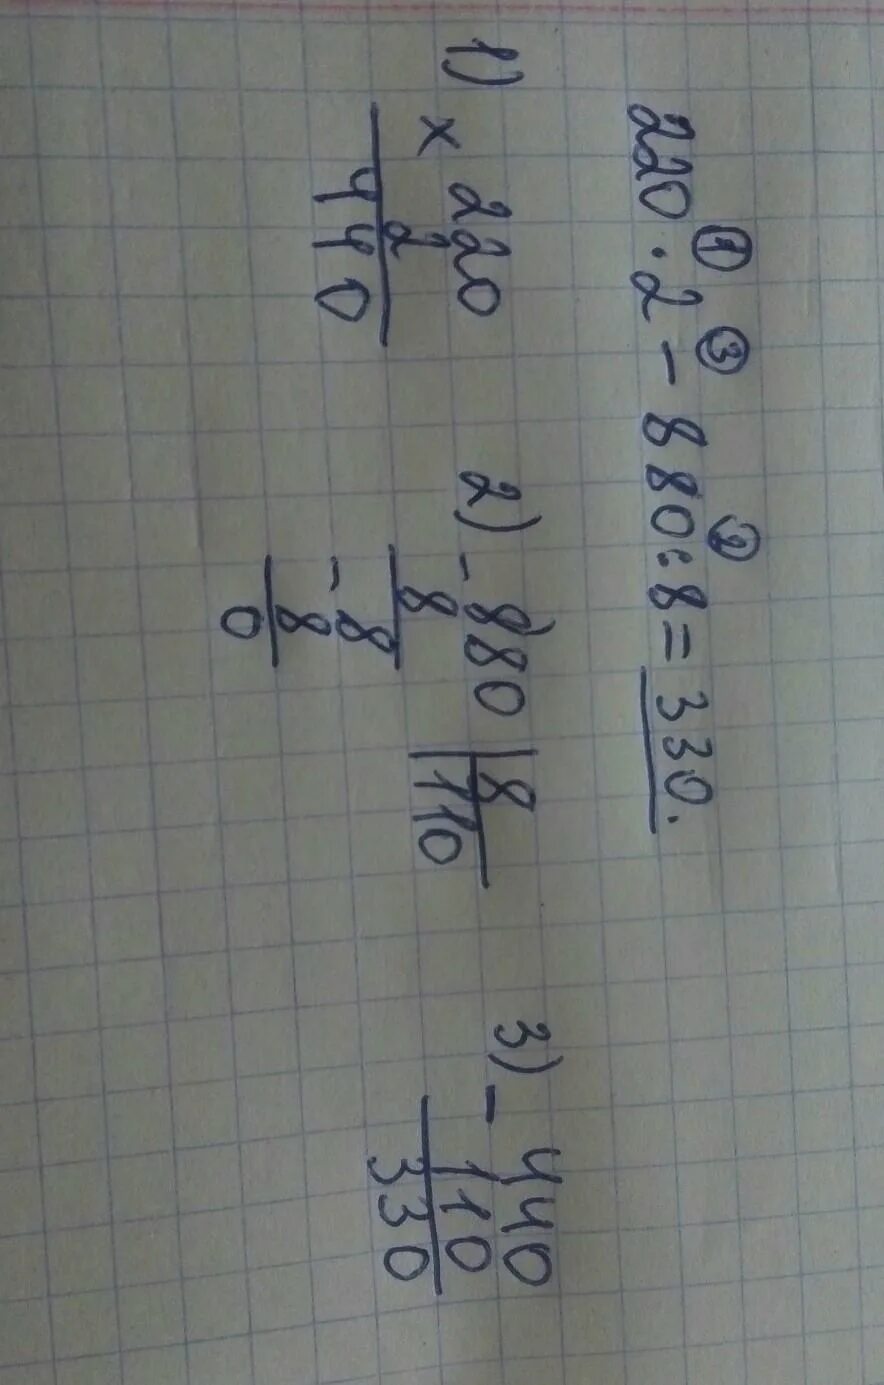 ① ③ ②
220 · 2 - 880 : 8 = 330.
1) × 220
2
440
2) - 880 | 8
8 110
- 8
8
0
3) - 440
110
330